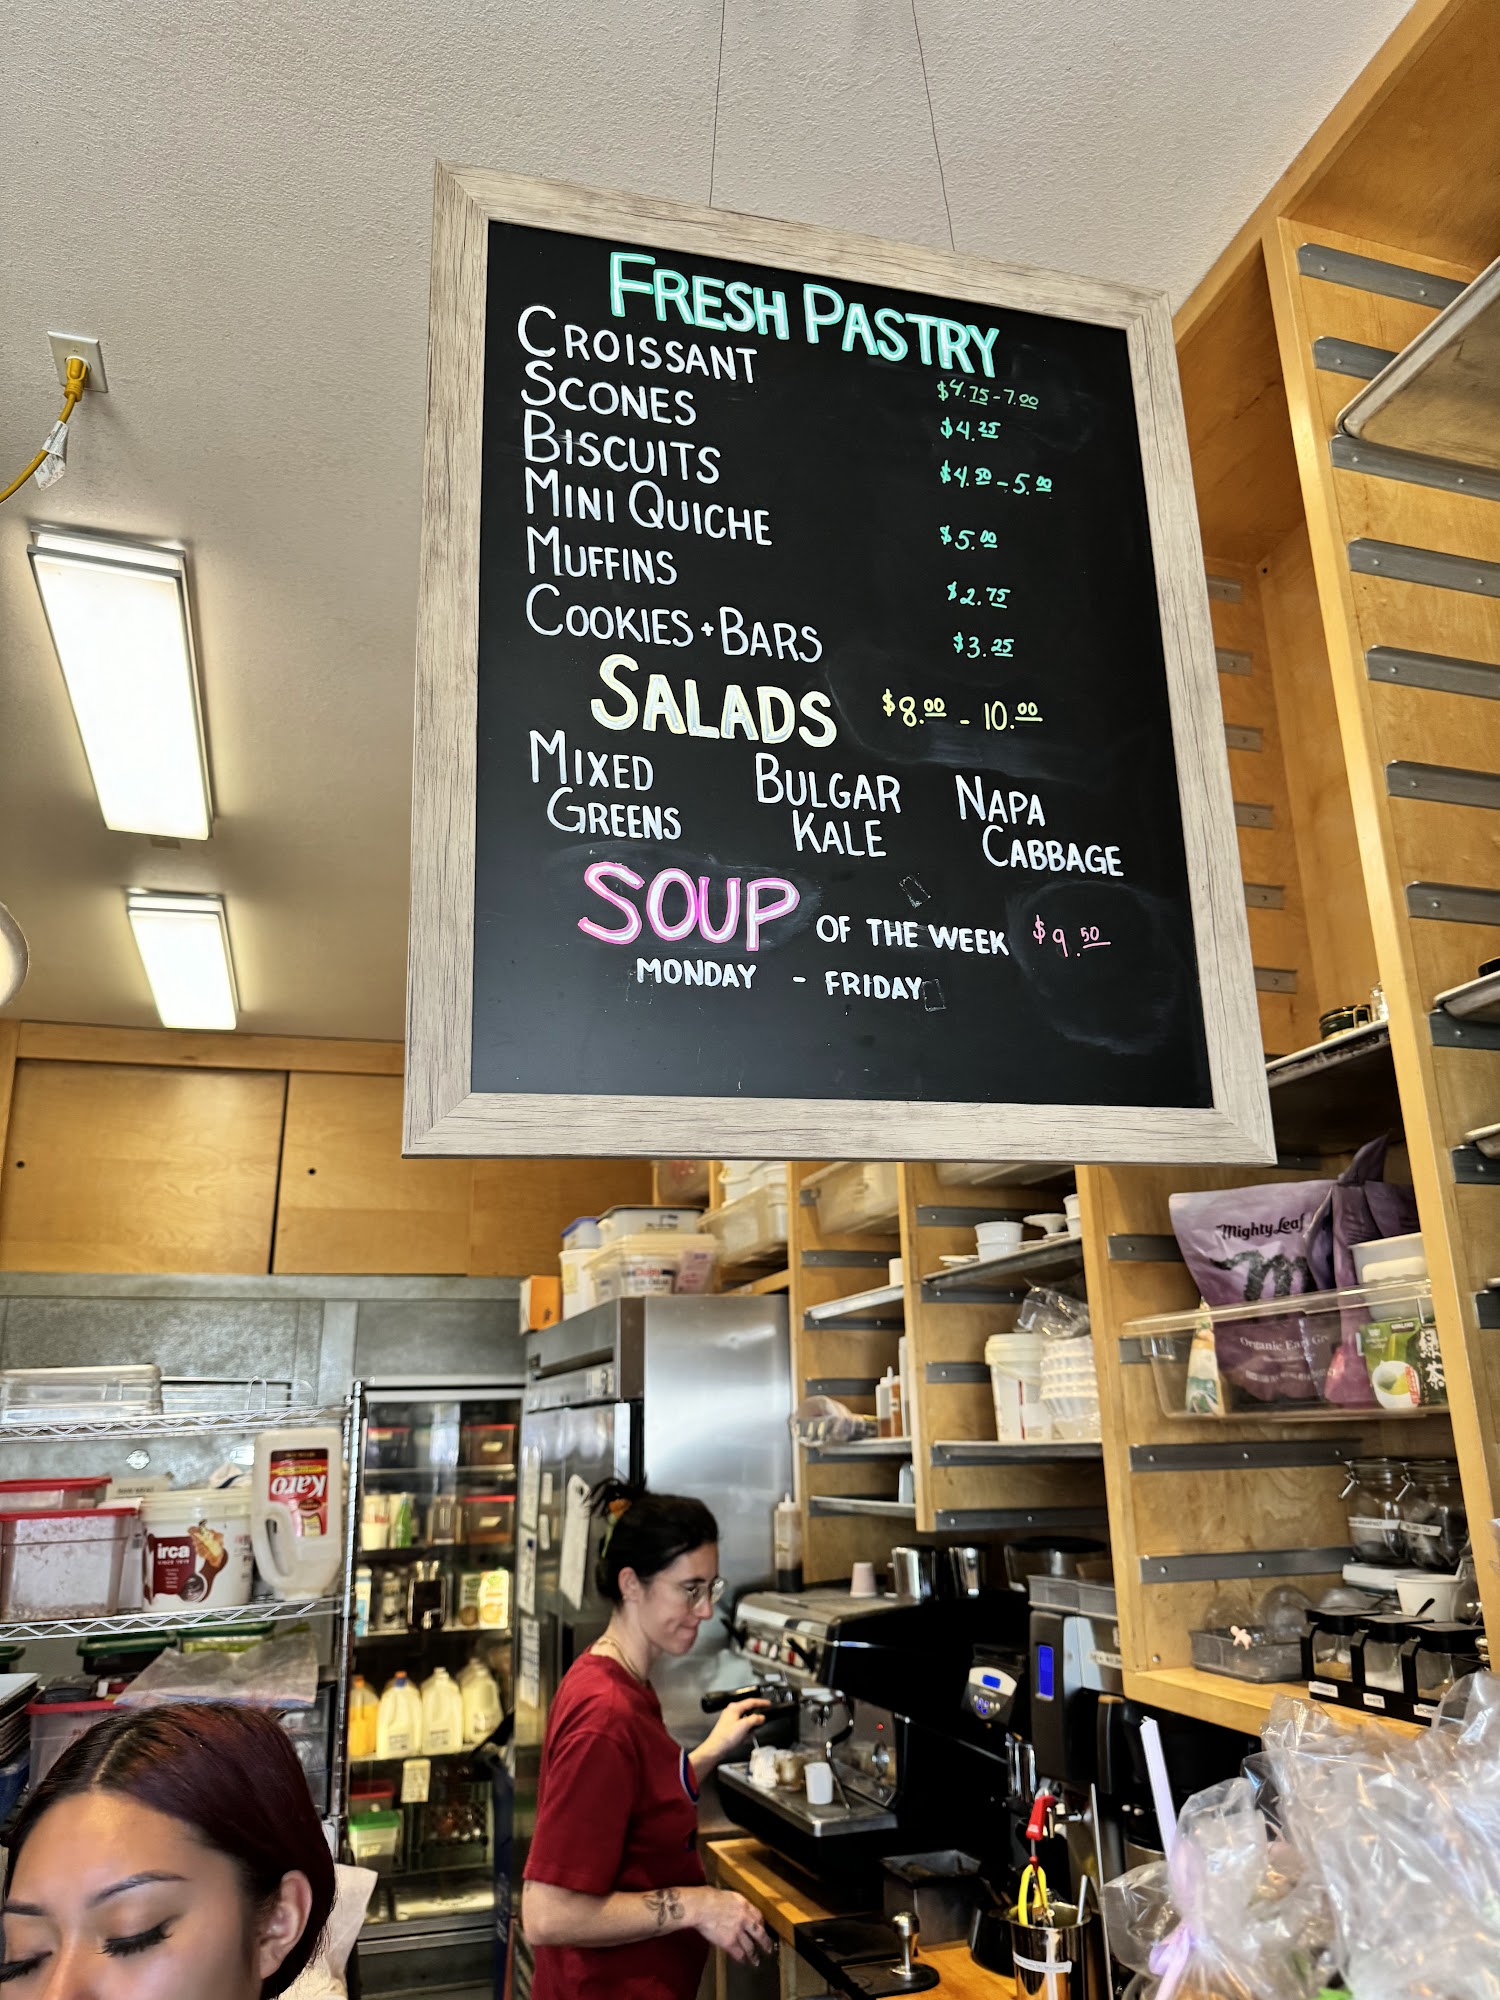 FRESH PASTRY
CROISSANT $4.75-7.00
SCONES $4.25
BISCUITS $4.50-5.00
MINI QUICHE $5.00
MUFFINS $2.75
COOKIES + BARS $3.25
SALADS $8.00 - 10.00
MIXED GREENS
BULGAR KALE
NAPA CABBAGE
SOUP OF THE WEEK $9.50
MONDAY - FRIDAY
Mighty Leaf
Organic Earl Gr
Karo
irca